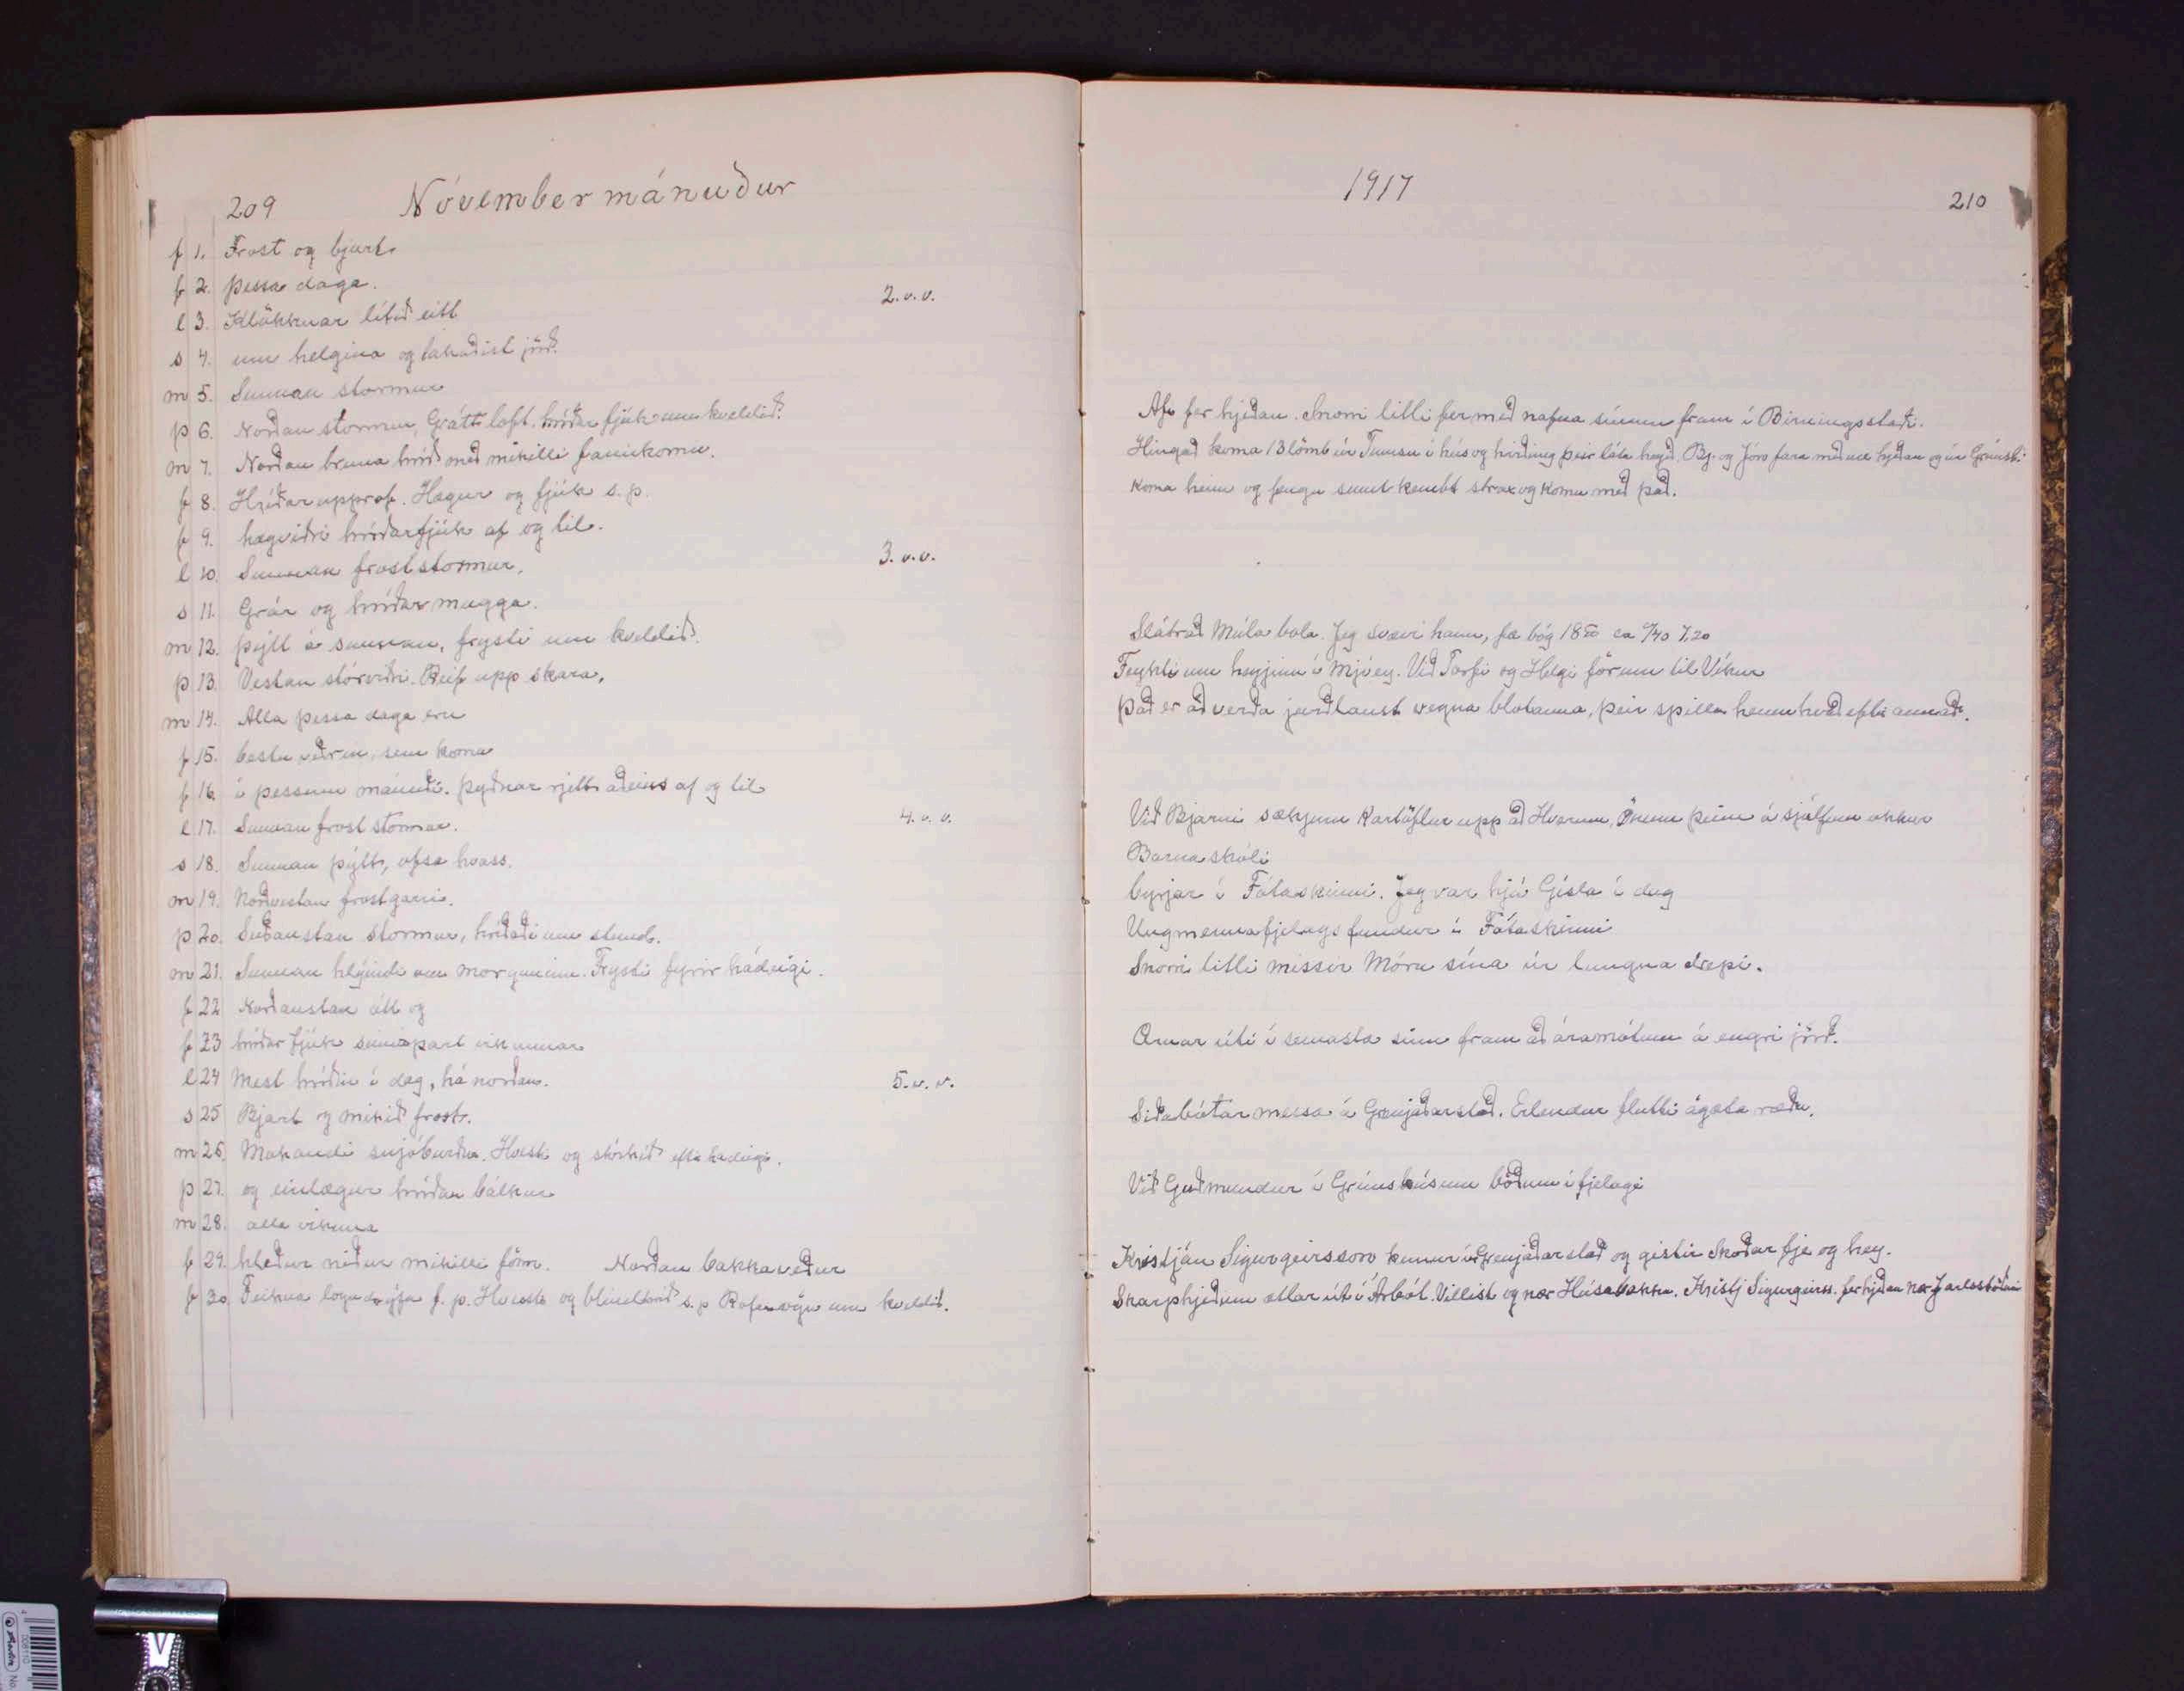 209 Nóvember mánuður
f 1. Frost og bjart
f 2. þessa daga.
2. v. v.
l 3. Klökknar lítið eitt
s 4. um helgina og takaðist jörð.
m 5. Sunnan stormur
þ 6. Norðan stormur, Grátt loft, hríðar fjúk um kveldið.
m 7. Norðan bruna hríð með mikilli fannkomu.
f 8. Hríðar upprof. Hægur og fjúk s. p.
f 9. hægviðri hríðarfjúk af og til.
l 10. Sunnan froststormur.
3. v. v.
s 11. Grár og hríðar mugga.
m 12. þýtt á sunnan, frysti um kveldið.
þ 13. Vestan stórviðri. Reif upp skara.
m 14. Alla þessa daga eru
f 15. bestu veðrin, sem koma
f 16. í þessum mánuði. þyðnar rjett aðeins af og til
l 17. Sunnan frost stormur.
4. v. v.
s 18. Sunnan þýtt, ofsa hvass.
m 19. Norðvestan frostgarri.
þ 20. Suðaustan stormur, hríðaði um stund.
m 21. Sunnan hlýindi um morguninn. Frysti fyrir hádeigi.
f 22 Norðaustan átt og
f 23 hríðar fjúk seinnipart vikunnar
l 24 Mest hríðin í dag, há norðan.
5. v. v.
s 25 Bjart og mikið frost.
m 26. Makandi snjóburður. Hvesti og stórhríð eftir hádeigi.
þ 27. og einlægur hríðar bálkur
m 28. alla vikuna
f 29. hleður niður mikilli fönn. Norðan bakkaveður
f 30. Feikna logndrífa f. p. Hvesti og blindhríð s. p Rofur ögn um kveldið.
1917
210
Afi fer hjeðan. Snorri litli fer með nafna sínum fram í Birningsstaði.
Hingað koma 13 lömb úr Tumsu í hús og hirðing þeir láta heyið. Bj. og Jóns fara með ull hjeðan og úr Grímsh.
koma heim og fengu sumt kembt strax og komu með það.
Slátrað Múla bola. Jeg svævi hann, fæ bóg 18
Feykti um heyjum í Mjóey. Við Torfi og Helgi förum til Víkur
Það er að verða jarðlaust vegna blotanna, þeir spilla henni hvað eftir annað.
Við Bjarni sækjum Kartöflur upp að Hverum, Ökum þeim á sjálfum okkur
Barnaskóli
byrjar í Fótaskinni. Jeg var hjá Gísla í dag
Ungmennafjelags fundur í Fótaskinni
Snorri litli missir Móru sína úr lungna drepi.
Ærnar úti í seinasta sinn fram að áramótum á engri jörð.
Siðabótar messa á Grenjaðarstað. Erlendur flutti ágæta ræðu.
Við Guðmundur í Grímshúsum böðum í fjelagi
Kristján Sigurgeirsson kemur úr Grenjaðarstað og gistir Skoðar fje og hey.
Skarphjeðinn ætlar út í Árbót. Villist og nær Húsabakka. Kristj Sigurgeirss. fer hjeðan nær Jarlsstöðum